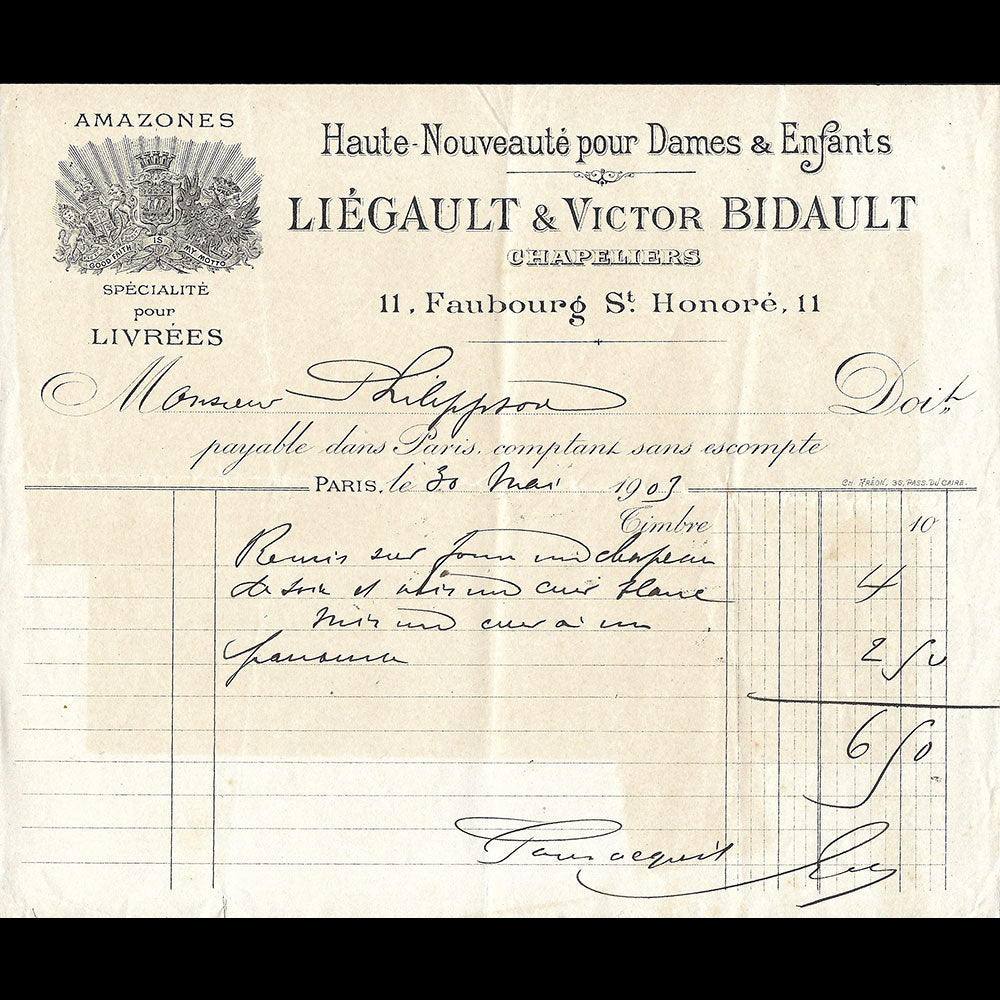 AMAZONES
GOOD FAITH IS MY MOTTO
SPÉCIALITÉ
pour
LIVRÉES
Haute-Nouveauté pour Dames & Enfants
LIÉGAULT & VICTOR BIDAULT
CHAPELIERS
11, Faubourg St. Honoré, 11
Monsieur Philippson Doit
payable dans Paris, comptant sans escompte
PARIS, le 30 Mai 1903
CH. FRÉON, 35, PASS. DU CAIRE.
Timbre 10
Remis sur forme un chapeau
de soie et mis un cuir blanc 4
Mis un cuir à un
panama 2 50
6 50
Pour acquit